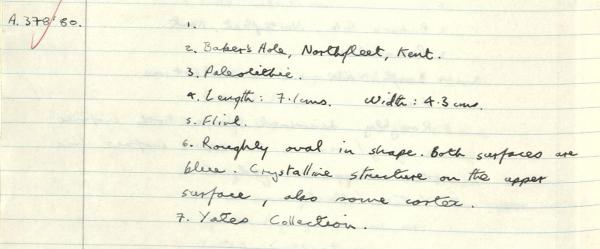 A. 378'80.
1.
2. Baker's Hole, Northfleet, Kent.
3. Paleolithic.
4. Length: 7.1cms. Width: 4.3cms.
5. Flint.
6. Roughly oval in shape. Both surfaces are
blue. Crystalline structure on the upper
surface, also some cortex.
7. Yates Collection.